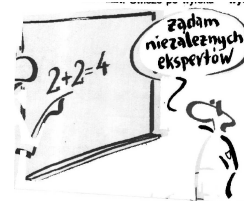 2+2=4
żądam
niezależnych
ekspertów